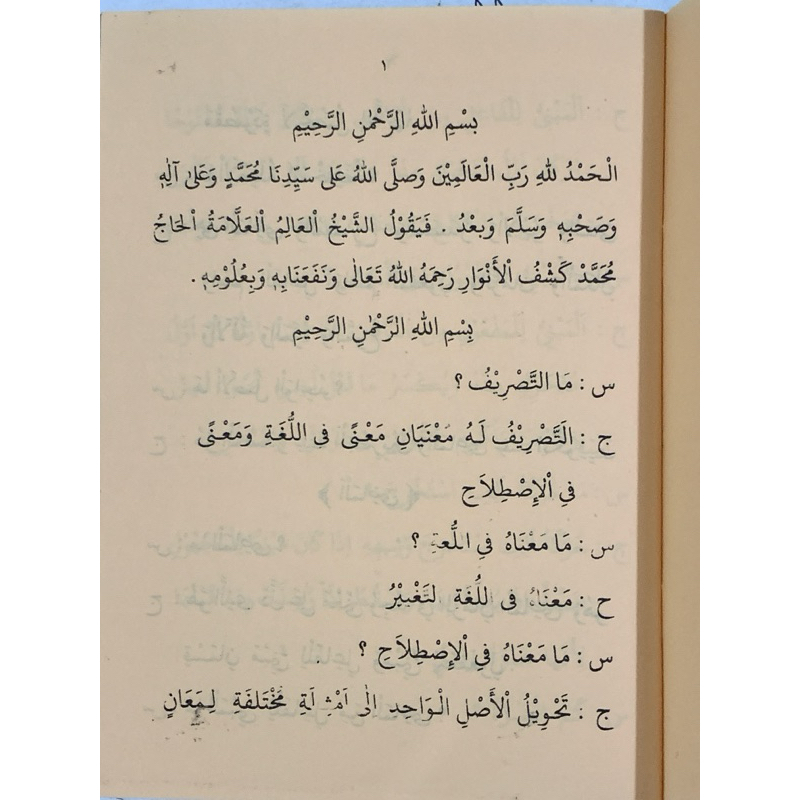 ١
بِسْمِ اللهِ الرَّحْمٰنِ الرَّحِيْمِ
الْحَمْدُ لِلهِ رَبِّ الْعَالَمِيْنَ وَصَلَّى اللهُ عَلى سَيِّدِنَا مُحَمَّدٍ وَعَلىٰ آلِهٖ
وَصَحْبِهٖ وَسَلَّمَ وَبعْدُ . فَيَقُوْلُ الشَّيْخُ الْعَالِمُ الْعَلَّامَةُ الْحَاجُ
مُحَمَّدْ كَشْفُ الْأَنْوَارِ رَحِمَهُ اللهُ تَعَالٰى وَنَفَعَنَابِهٖ وَبِعُلُوْمِهٖ .
بِسْمِ اللهِ الرَّحْمٰنِ الرَّحِيْمِ
س : مَا التَّصْرِيْفُ ؟
ج : الَتَّصْرِيْفُ لَهُ مَعْنَيَانِ مَعْنًى فِي اللُّغَةِ وَمَعْنًى
فِي الْإِصْطِلَاحِ
س : مَا مَعْنَاهُ فِي اللُّعةِ ؟
ح : مَعْنَاهُ فِى اللُّغَةِ التَغْبِيْرُ
س : مَا مَعْنَاهُ فِي الْإِصْطِلَاحِ ؟
ج : تَحْوِيْلُ الْأَصْلِ الْوَاحِدِ اِلٰى اَمْثِلَةٍ مُخْتَلفَةٍ لِمَعَانٍ